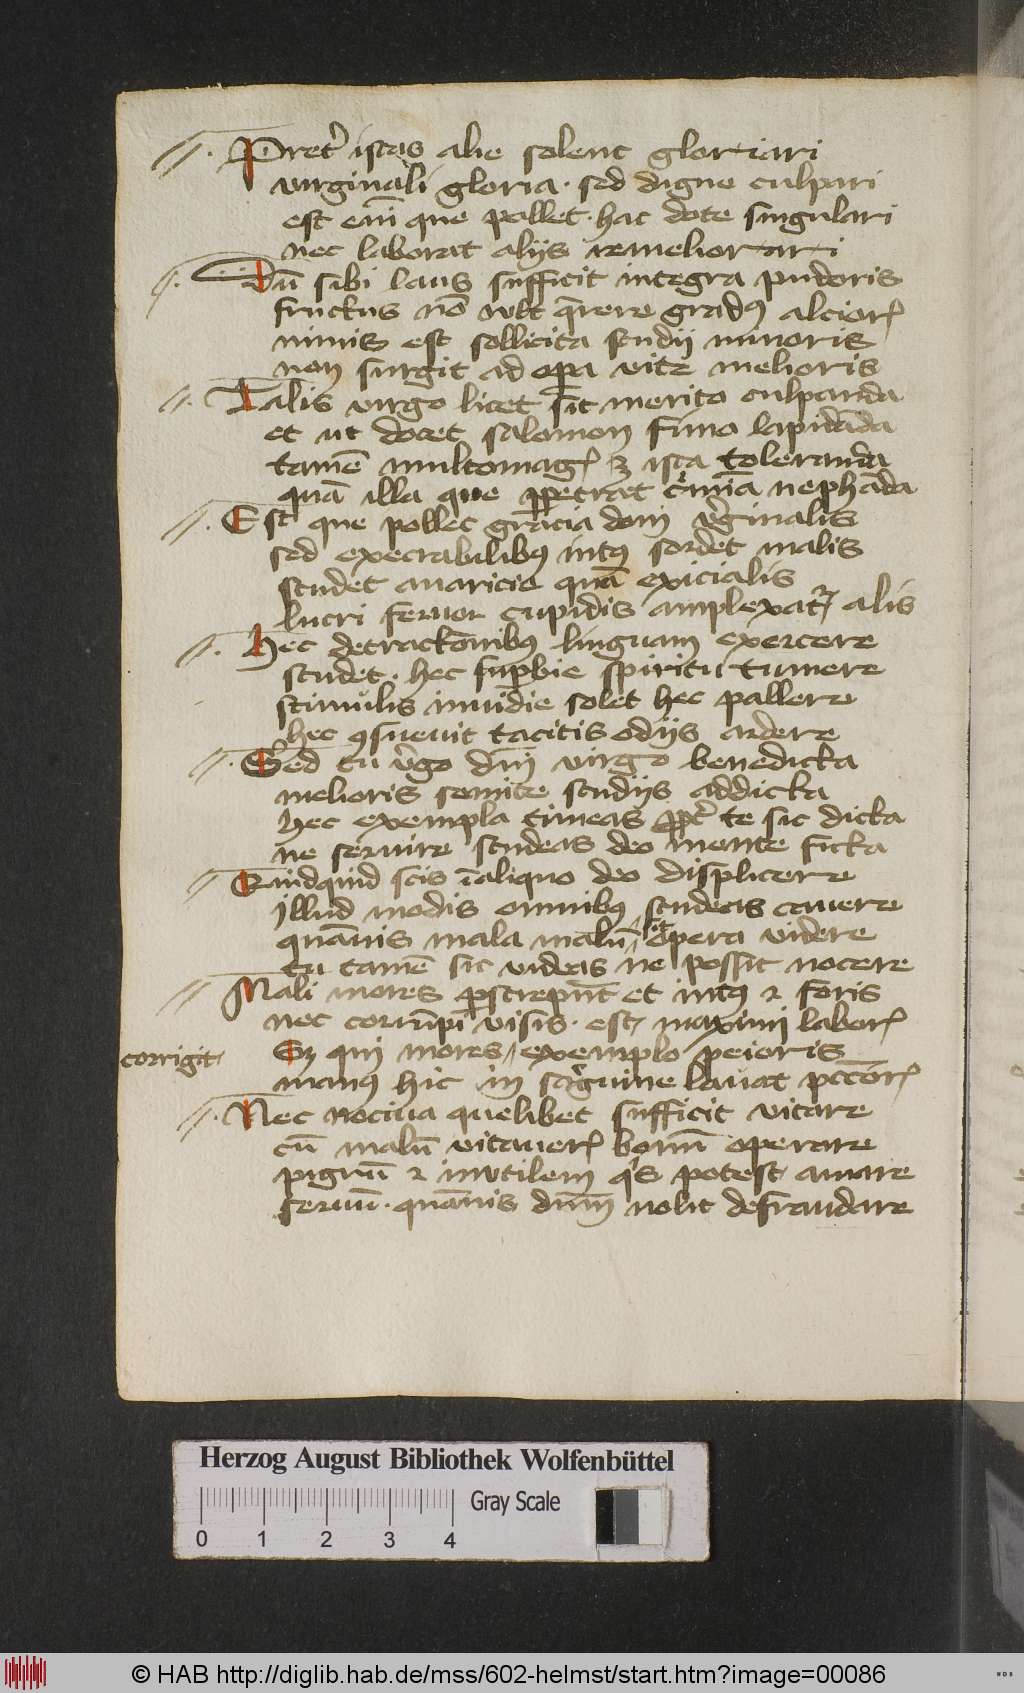 Pretˀ istas alie solent gloriari
virginali gloria · sed digne culpari
est em̄ que pallet · hac dote singulari
nec laborat alijs remeliorari
Dū sibi laus sufficit integra pudoris
fructus nō vlt qˉrere gradꝰ alcioꝝ
nimis est sollicita studij minoris
non surgit ad oꝑa vite melioris
Talis virgo licet sit merito culpanda
et ut docet salomon fimo lapidāda
tamē multomagꝭ ꝫ ista toleranda
quā illa que ꝑpetrat cͥmīa nephāda
Est que pollet gracia doni vˀginalis
sed execrabilibꝰ intꝰ sordet malis
studet auaricie quā exicialis
lucri feruor cupidis amplexatꝛ alis
Hec detractōnibꝰ linguam exercere
studet · hec suꝑbie spiritu tumere
stimulis inuidie solet hec pallere
hec ꝯsueuit tacitis odijs ardere
Sed tu vˀgo dn̄i virgo benedicta
melioris semite studijs addicta
hec exempla timeas ꝓptˀ te sic dicta
ne seruire studeas deo mente ficta
Quidquid scis īaliquo deo displicere
illud modis omnibꝰ studeas cauere
quāuis mala malū set opera videre
tu tamē sic videas ne possit nocere
Mali mores ꝑstrepūt et intꝰ ⁊ foris
nec corrūpi visis · est maximi laborꝭ
Sꝫ qui mores exemplo peioris
corrigit
manꝰ hic in sāguine lauat pctōrꝭ
Nec nociua quelibet sufficit vitare
cū malū vitauerꝭ bonū operare
pigrū ⁊ invtilem qͥs potest amare
seruū · quāuis dnm̄ nolit defraudare
Herzog August Bibliothek Wolfenbüttel
Gray Scale
0 1 2 3 4
© HAB http://diglib.hab.de/mss/602-helmst/start.htm?image=00086